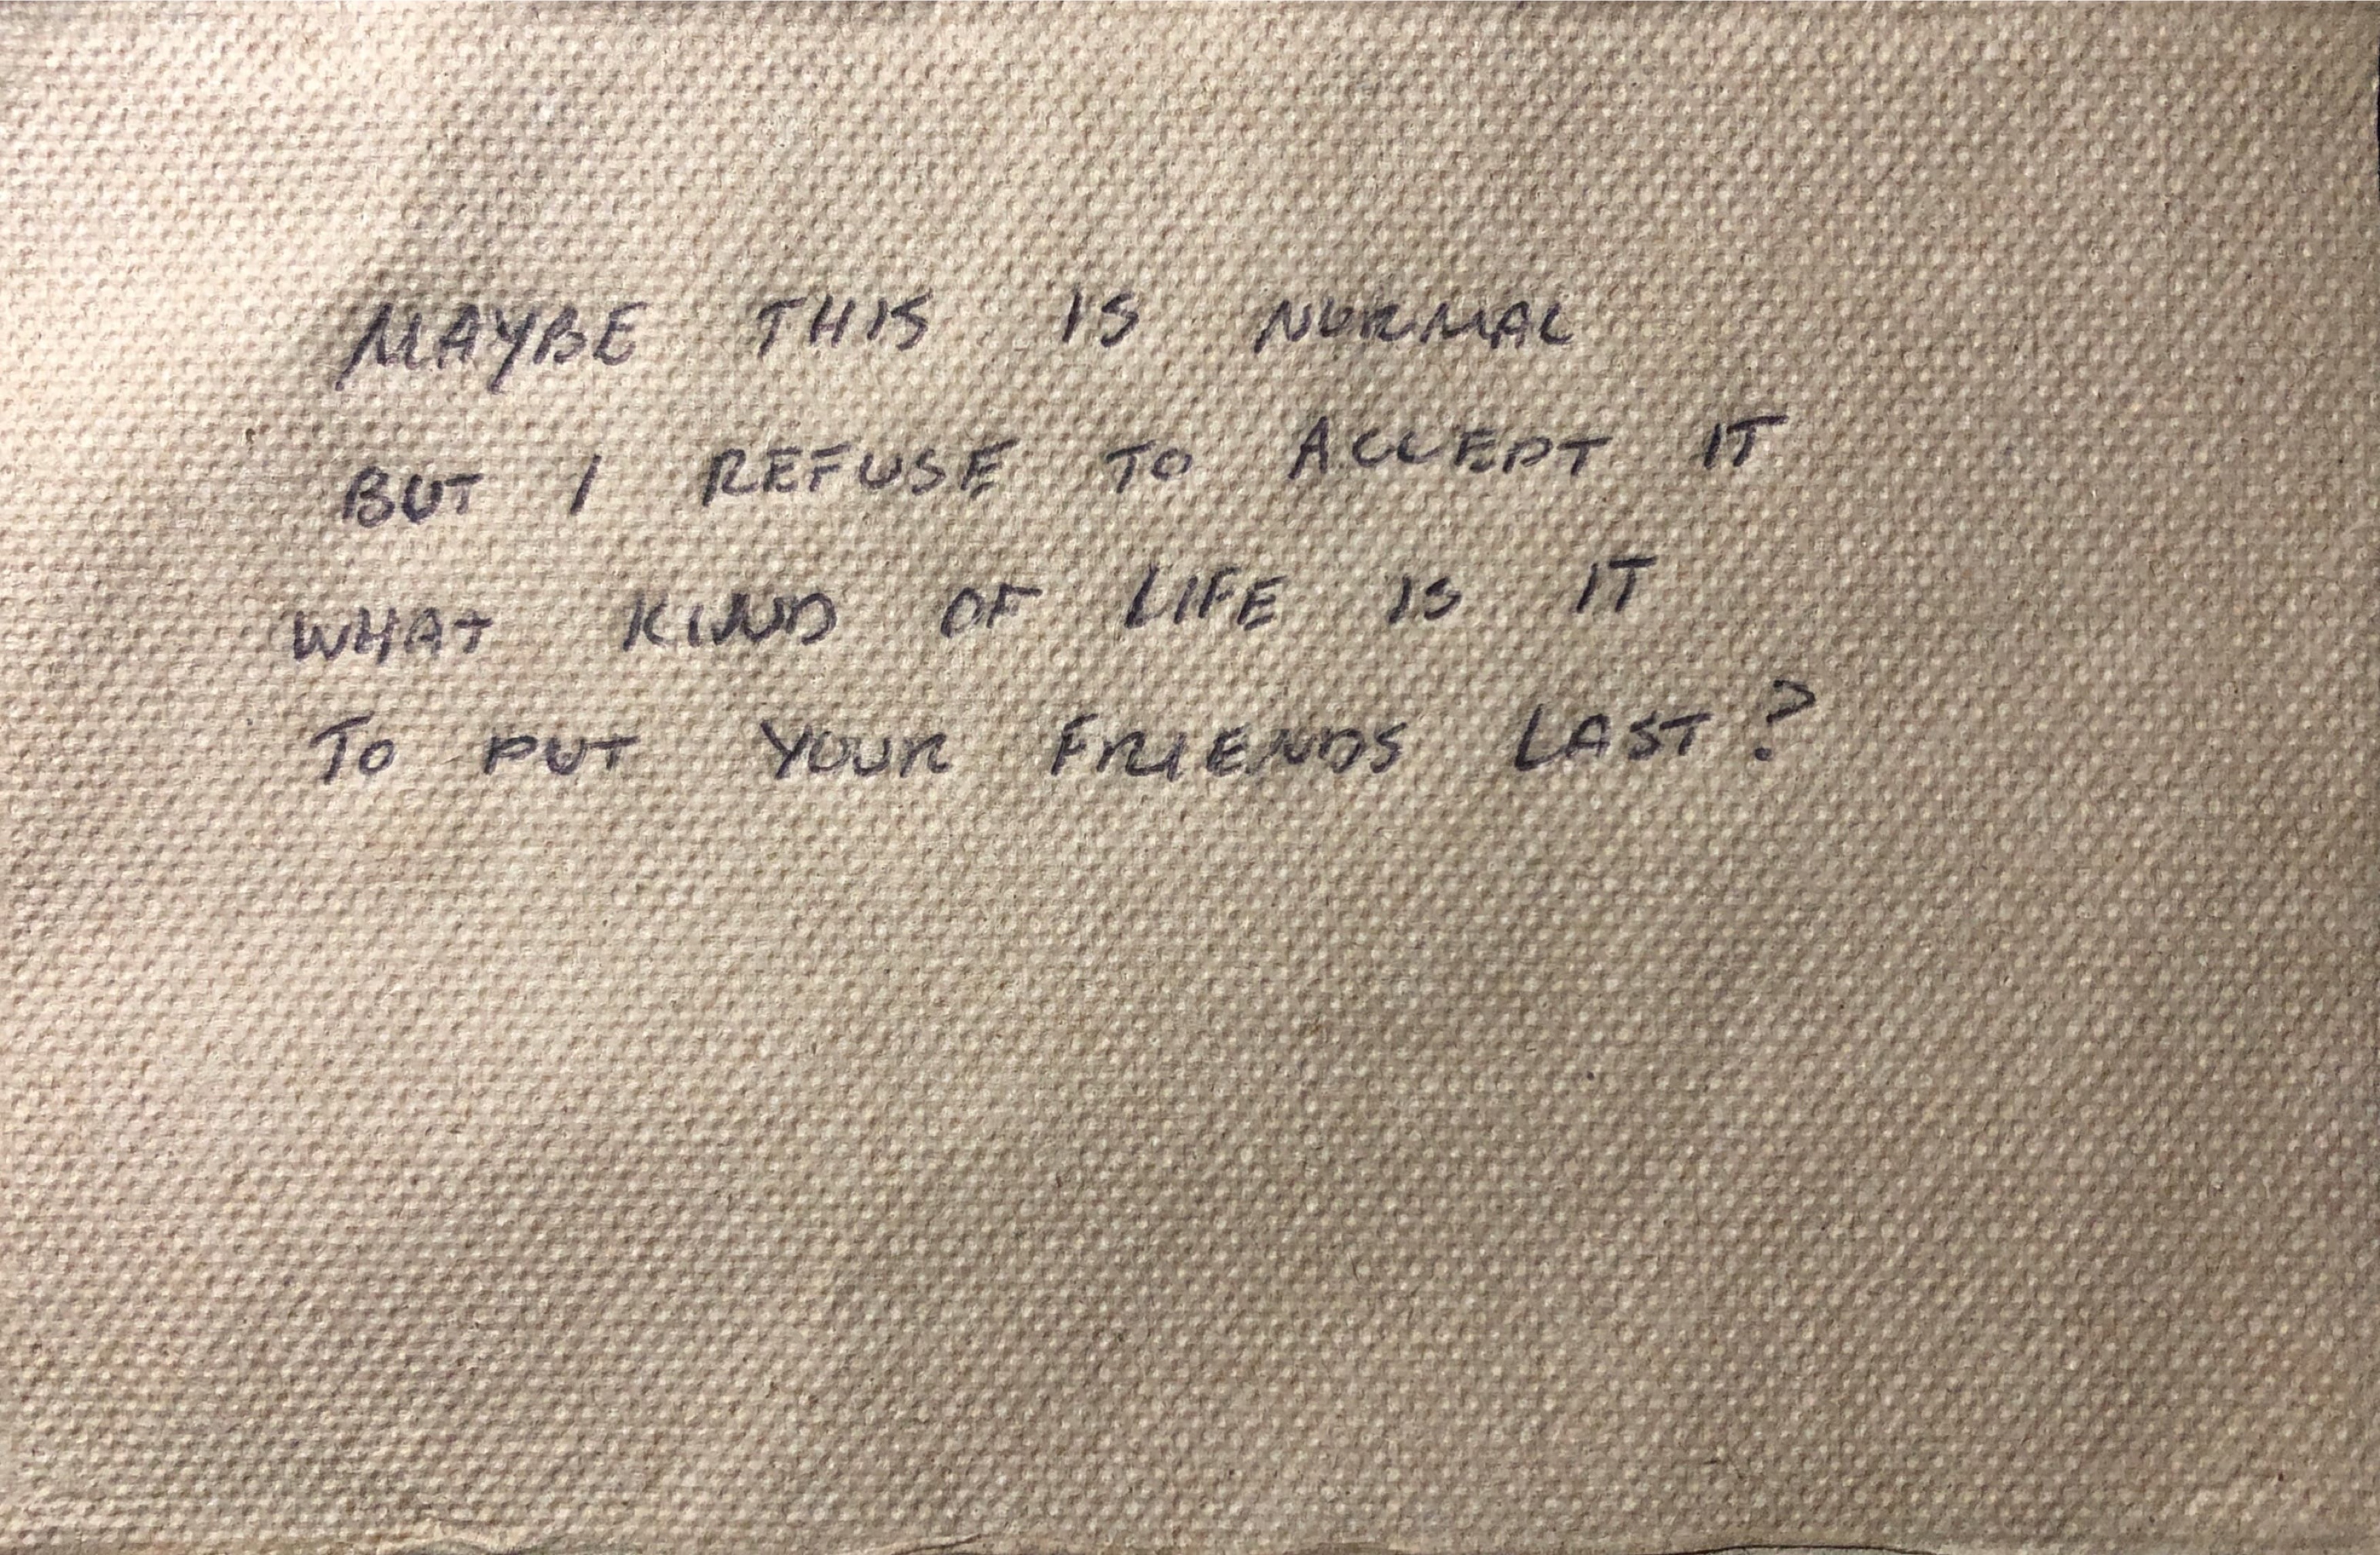 MAYBE THIS IS NORMAL
BUT I REFUSE TO ACCEPT IT
WHAT KIND OF LIFE IS IT
TO PUT YOUR FRIENDS LAST?